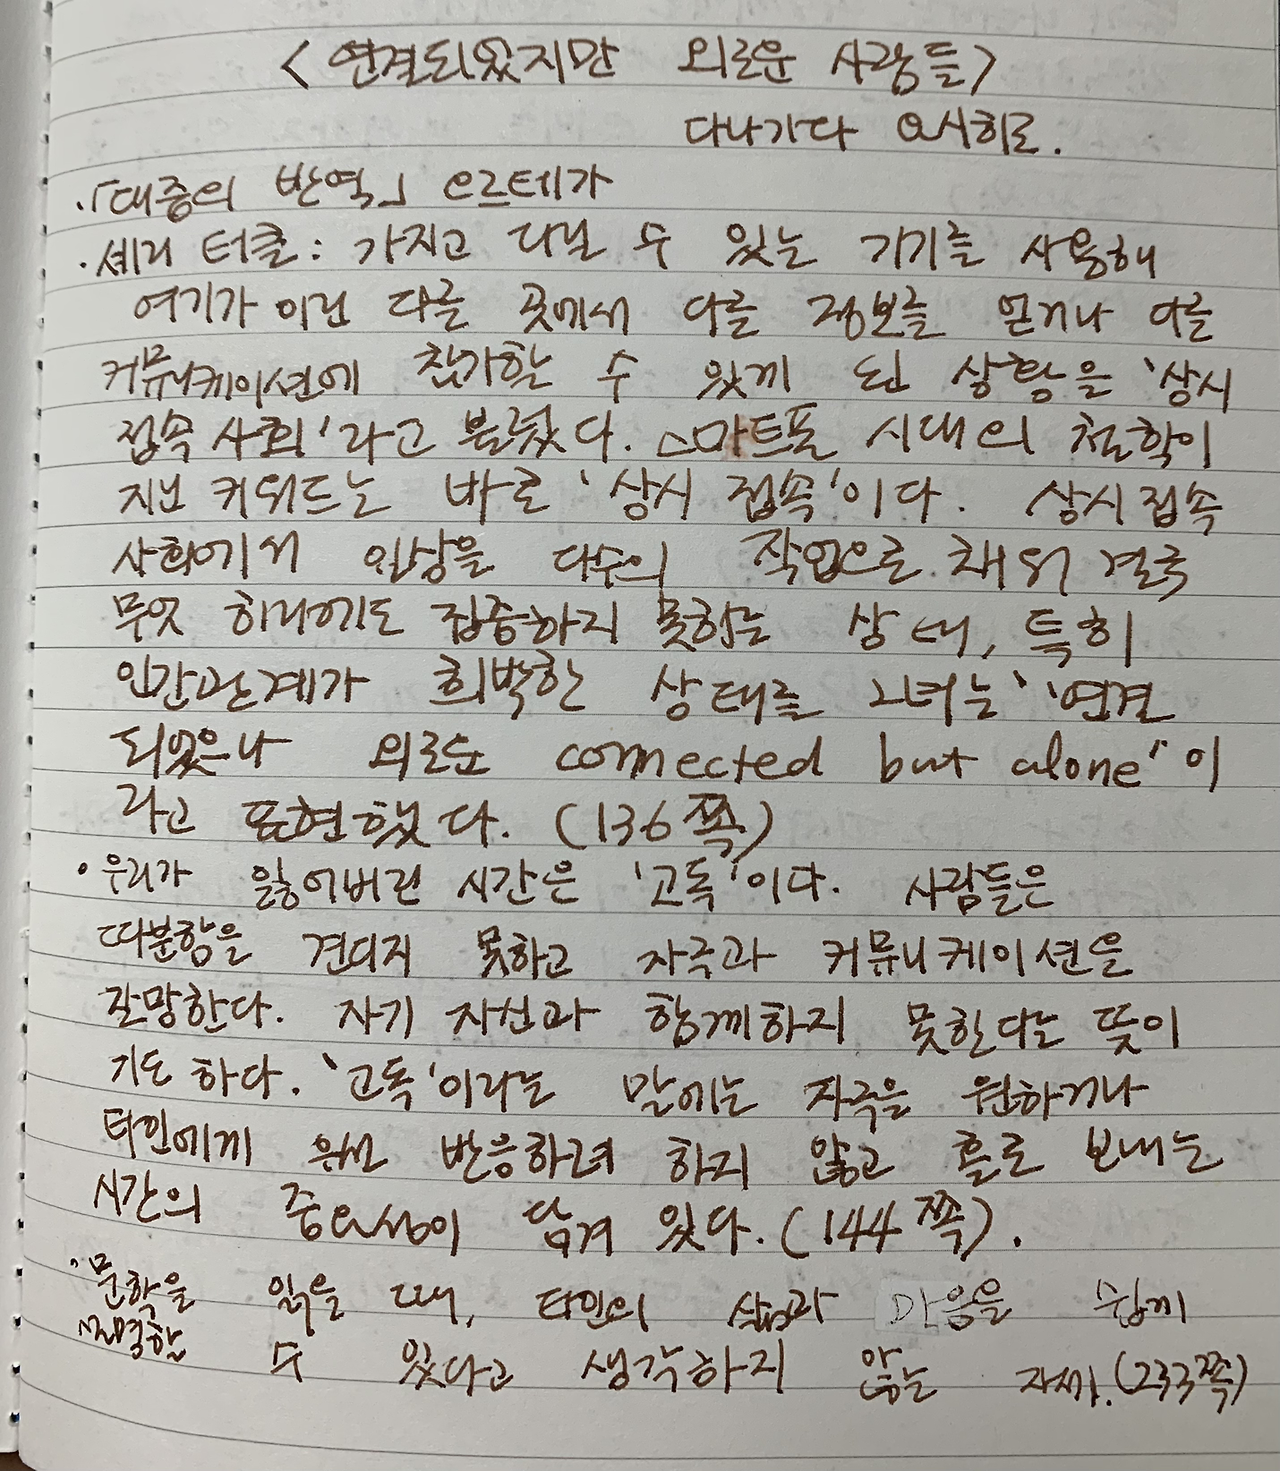 <연결되었지만 외로운 사람들>
다나가다 요시히로.
·「대중의 반역」 오르테가
·셰리 터클 : 가지고 다닐 수 있는 기기를 사용해
여기가 아닌 다른 곳에서 다른 정보를 얻거나 다른
커뮤니케이션에 참가할 수 있게 된 상황을 '상시
접속 사회'라고 불렀다. 스마트폰 시대의 철학이
지닌 키워드는 바로 '상시 접속'이다. 상시 접속
사회에서 일상을 다수의 작업으로 채워 결국
무엇 하나에도 집중하지 못하는 상태, 특히
인간관계가 희박한 상태를 그녀는 '연결
되었으나 외로운 connected but alone'이
라고 표현했다. (136쪽)
· 우리가 잃어버린 시간은 '고독'이다. 사람들은
따분함을 견디지 못하고 자극과 커뮤니케이션을
갈망한다. 자기 자신과 함께하지 못한다는 뜻이
기도 하다. '고독'이라는 말에는 자극을 원하거나
타인에게 반응하려 하지 않고 홀로 보내는
시간의 중요성이 담겨 있다. (144쪽).
· 문학을 읽을 때, 타인의 삶과 마음을 쉽게
설명할 수 있다고 생각하지 않는 자세. (233쪽)